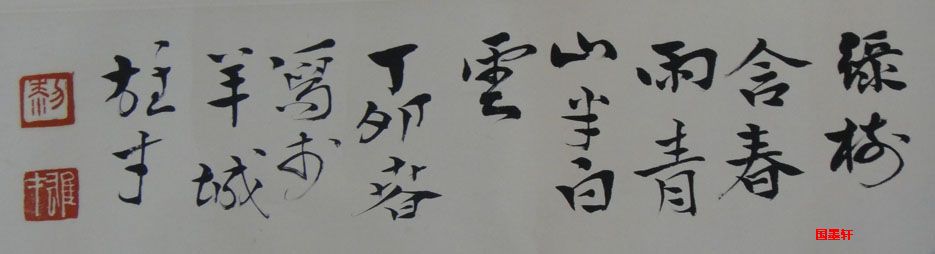 綠樹
含春
雨青
山半白
雲
丁卯春
寫於
羊城
雄才
黎
雄才
国墨轩